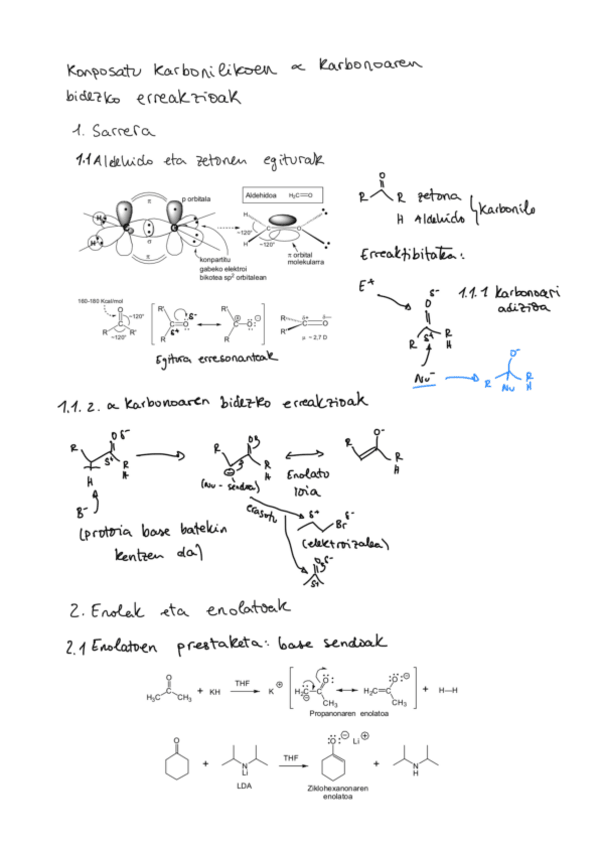 Konposatu Karbonilikoen α Karbonoaren
bidezko erreakzioak
1. Sarrera
1.1 Aldehido eta zetonen egiturak
π
p orbitala
H
C
O
σ
H
π
konpartitu
gabeko elektroi
bikotea sp² orbitalean
Aldehidoa H₂C=O
H
~120°
C
O
H
~120°
π orbital
molekularra
O
R R zetona
H Aldehido
Karbonilo
Erreaktibitatea:
E⁺
δ⁻
O
R δ⁺ R
H
1.1.1 Karbonoari
adizioa
Nu⁻
O⁻
R Nu R
H
160-180 Kcal/mol
O
~120°
C
R R'
~120°
R' R
C=O δ⁻
δ⁺
R' R
C–O
⊕ ⊖
R
R'
C=O
δ+ δ−
μ ~ 2,7 D
Egitura erresonanteak
1.1.2. α Karbonoaren bidezko erreakzioak
R O δ⁻
δ⁺ R
H H
B⁻
(protoia base batekin
kentzen da)
R O
R
H
(Nu - sendoa)
Enolato
ioia
O⁻
R R
H
erasotu
δ⁺ δ⁻
Br
(elektroizalea)
O δ⁻
δ⁺
2. Enolak eta enolatoak
2.1 Enolatoen prestaketa: base sendoak
O
C
H₃C CH₃
+ KH
THF
K ⊕
O
H₂C–C
CH₃
O ⊖
H₂C=C
CH₃
+ H—H
Propanonaren enolatoa
O
+
N
Li
LDA
THF
O ⊖ Li ⊕
Ziklohexanonaren
enolatoa
+
N
H